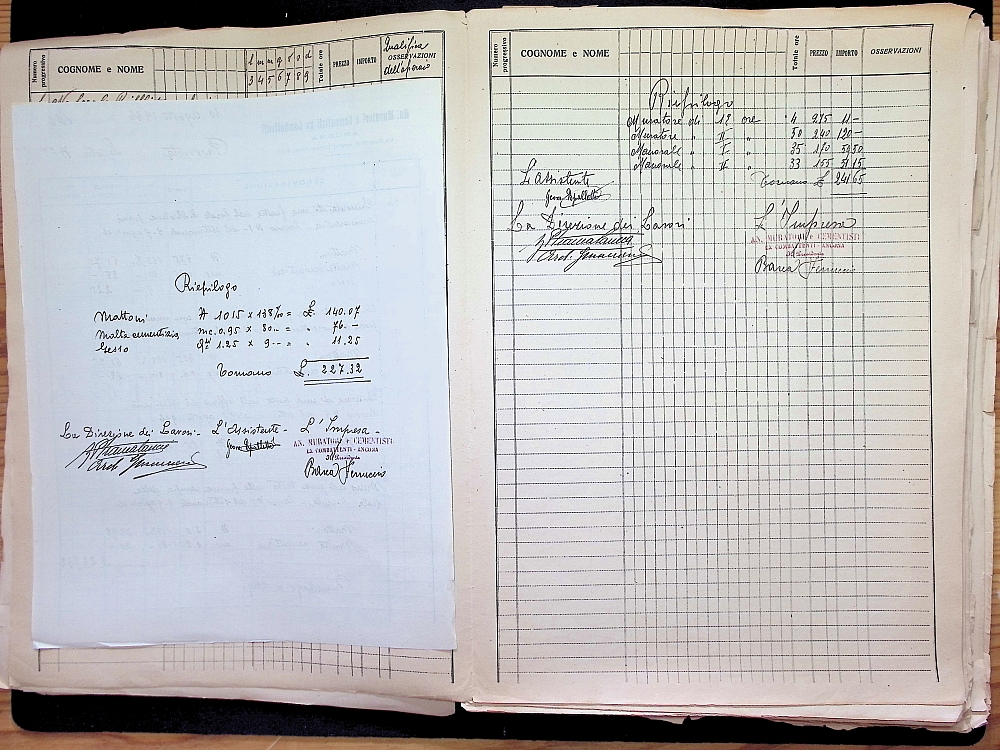 Numero progressivo COGNOME e NOME l m m g v s d Totale ore PREZZO IMPORTO Qualifica OSSERVAZIONI dell'operaio
3 4 5 6 7 8 9
Riepilogo
Mattoni N 1015 x 138‰ = £. 140.07
Malta cementizia mc. 0,95 x 80.- = " 76.-
Gesso Qli 1.25 x 9-- = " 11.25
Tornano £. 227.32
La Direzione dei Lavori- L'Assistente- L'Impresa-
AN. MURATORI e CEMENTISTI
EX COMBATTENTI - ANCONA
Barca Ferruccio
Numero progressivo COGNOME e NOME Totale ore PREZZO IMPORTO OSSERVAZIONI
Riepilogo
Muratore di 1ª ore 4 2.75 11-
Muratore " II " 50 2.40 120-
Manovale " I " 35 1.70 59.50
Manovale " II " 33 1.55 51.15
Tornano £ 241.65
L'Assistente
La Direzione dei Lavori L'Impresa
AN. MURATORI e CEMENTISTI
EX COMBATTENTI - ANCONA
Barca Ferruccio